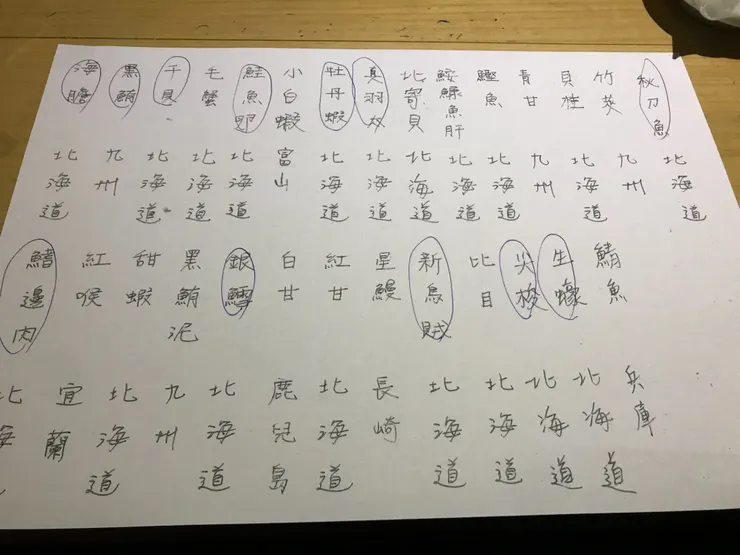 秋刀魚
北海道
竹莢
九州
貝柱
北海道
青甘
九州
鰹魚
北海道
鮟鱇魚肝
北海道
北寄貝
北海道
真羽奴
北海道
牡丹蝦
北海道
小白蝦
富山
鮭魚卵
北海道
毛蟹
北海道
干貝
北海道
黑鮪
九州
海膽
北海道
鯖魚
兵庫
生蠔
北海道
尖梭
北海道
比目
北海道
新烏賊
北海道
星鰻
長崎
紅甘
北海道
白甘
鹿兒島
銀鱈
北海道
黑鮪泥
九州
甜蝦
北海道
紅喉
宜蘭
鰭邊肉
北海道